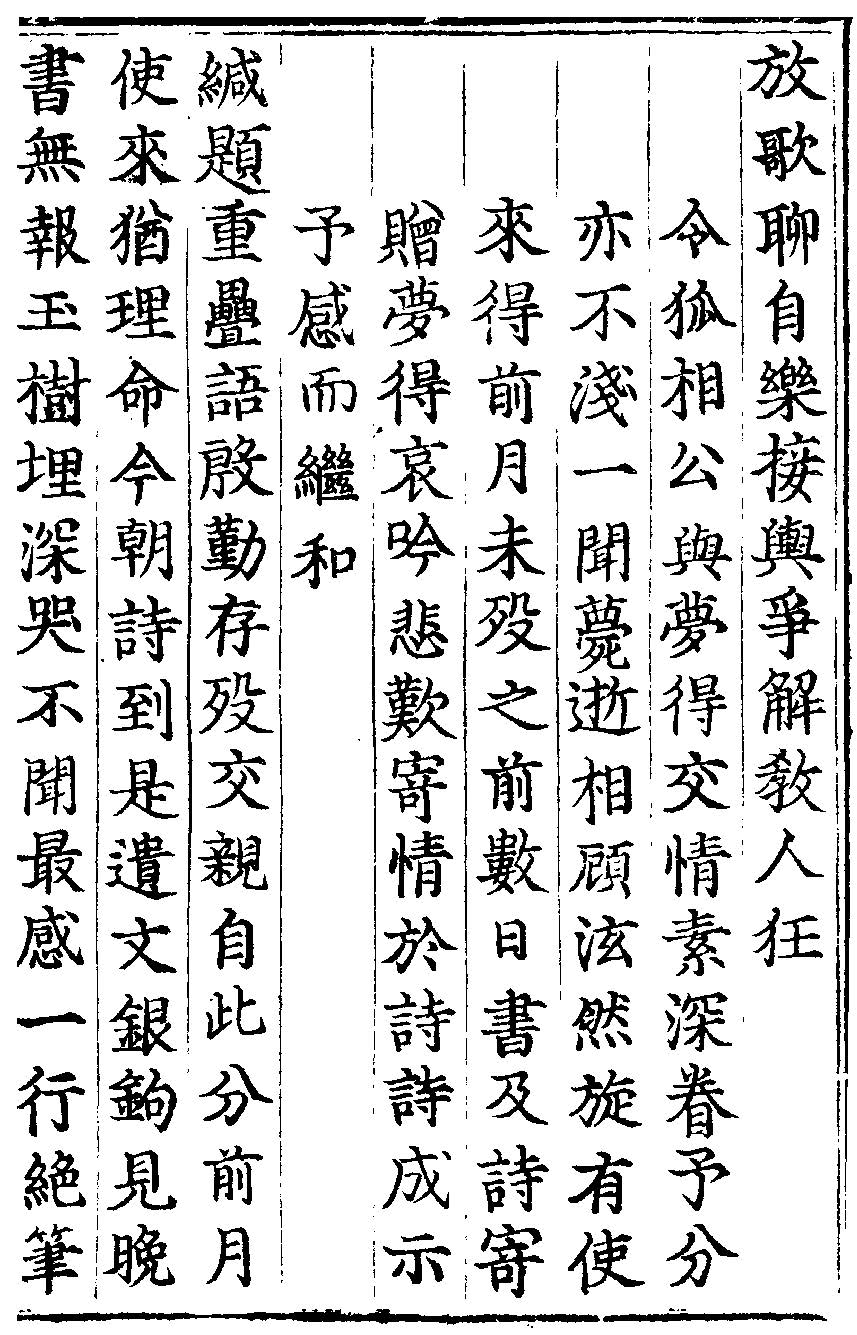 放歌聊自樂接輿爭解敎人狂
令狐相公與夢得交情素深眷予分
亦不淺一聞薨逝相顧泫然旋有使
來得前月未歿之前數日書及詩寄
贈夢得哀吟悲歎寄情於詩詩成示
予感而繼和
緘題重疊語殷勤存歿交親自此分前月
使來猶理命今朝詩到是遺文銀鉤見晚
書無報玉樹埋深哭不聞最感一行絕筆